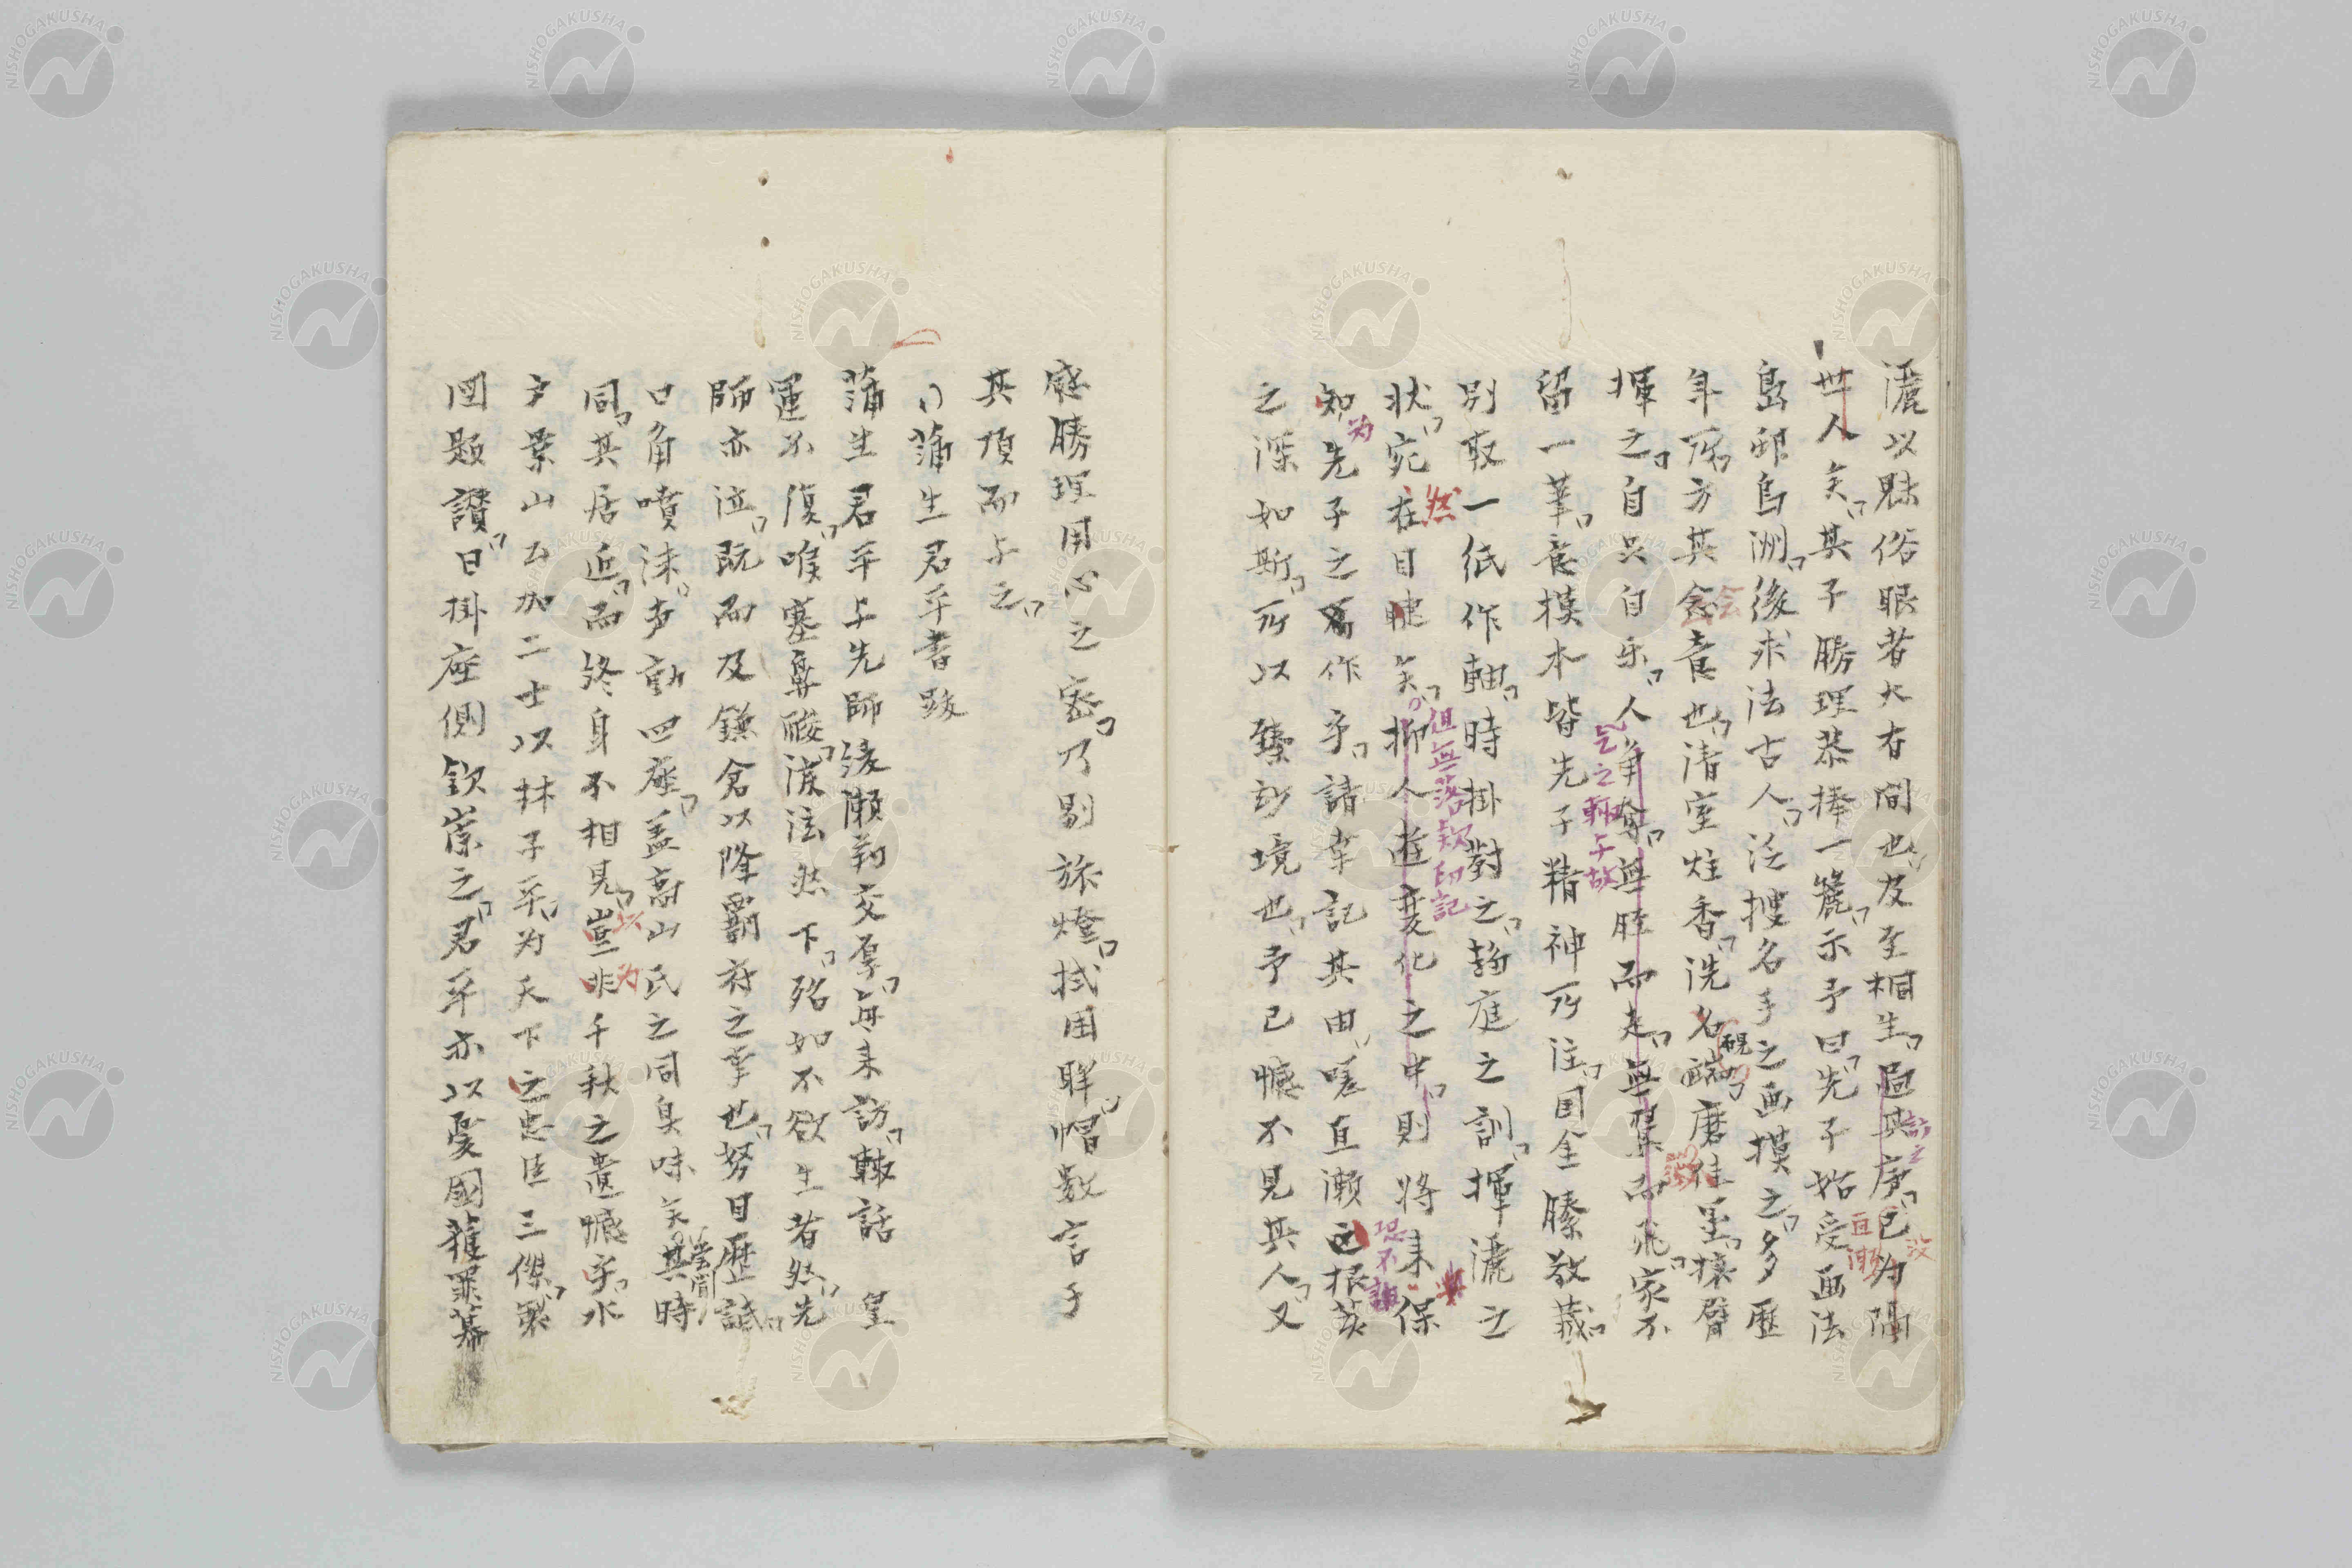 灑以駭俗眼者大有間也及至桐生過其廬已為隔
訪之
没
世人矣其子勝理恭捧一簏示予曰先子始受画法
直瀬
島邨烏洲後求法古人泛搜名手之画摸之多歴
年所方其会意也清室炷香洗名端磨佳墨攘臂
会
硯
揮之自娯自乐人争奪無脛而走無翼而飛家不
乞之輒与故
留一筆意摸本皆先子精神所注固全滕敬蔵
別取一紙作軸時掛對之趨庭之訓揮灑之
状宛在目睫矣抑人遊変化之中則将来保
然
但無落款印記
與
知先子之為作乎請幸記其由嗟直瀬
为
恐不誰
之深如斯所以臻妙境也予已憾不見其人又
感勝理用心之密乃剔旅燈拭困眸帽数言于
其頂而与之
蒲生君平書跋
蒲生君平与先師淡瀬翁交厚毎来訪輒話 皇
運不復喉塞鼻酸涙泫然下殆如不欲生者然先
師亦泣既而及鎌倉以降覇府之事也努目歴詆
口角噴沫声動四座盖高山氏之同臭味矣其時
同其居近而終身不相見豈非千秋之遺憾乎水
以
为
戸景山公加二士以林子平为天下之忠臣三傑製
図題讃曰掛座側欽崇之君平亦以憂國獲罪幕